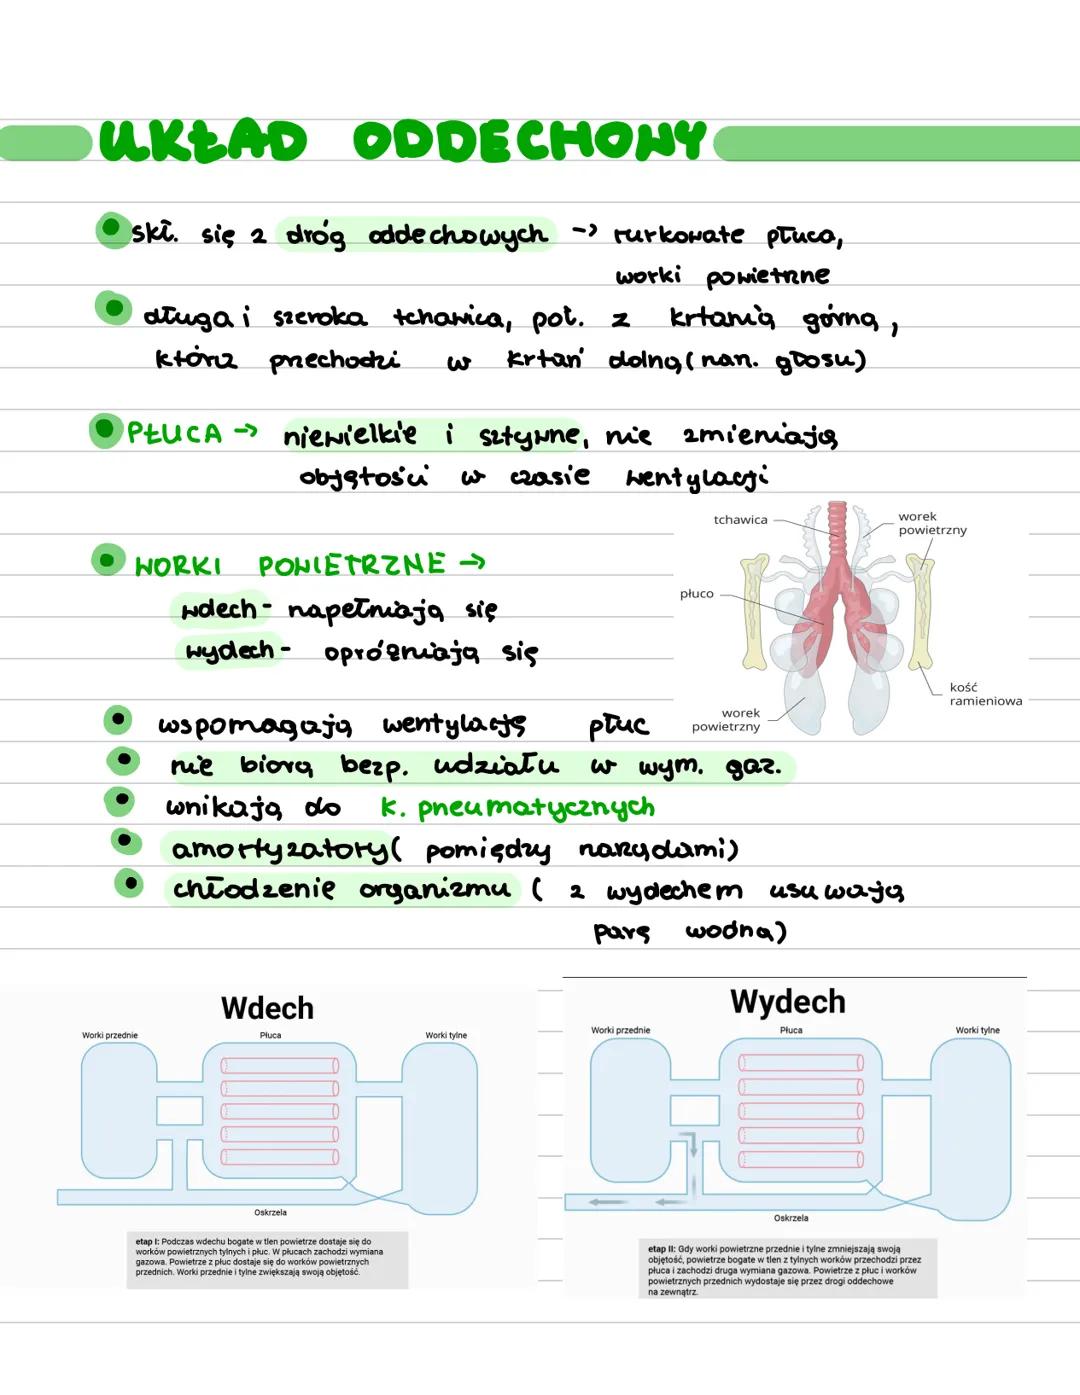 UKŁAD ODDECHOWY
skł. się z dróg oddechowych -> rurkowate płuca,
worki powietrzne
długa i szeroka tchawica, poł. z krtanią górną,
która przechodzi w krtań dolną (narz. głosu)
PŁUCA -> niewielkie i sztywne, nie zmieniają
objętości w czasie wentylacji
tchawica
worek
powietrzny
płuco
kość
ramieniowa
worek
powietrzny
WORKI POWIETRZNE ->
wdech - napełniają się
wydech - opróżniają się
wspomagają wentylację płuc
nie biorą bezp. udziału w wym. gaz.
wnikają do k. pneumatycznych
amortyzatory (pomiędzy narządami)
chłodzenie organizmu ( z wydechem usuwają
parę wodną)
Wdech
Worki przednie
Płuca
Worki tylne
Oskrzela
etap I: Podczas wdechu bogate w tlen powietrze dostaje się do
worków powietrznych tylnych i płuc. W płucach zachodzi wymiana
gazowa. Powietrze z płuc dostaje się do worków powietrznych
przednich. Worki przednie i tylne zwiększają swoją objętość.
Wydech
Worki przednie
Płuca
Worki tylne
Oskrzela
etap II: Gdy worki powietrzne przednie i tylne zmniejszają swoją
objętość, powietrze bogate w tlen z tylnych worków przechodzi przez
płuca i zachodzi druga wymiana gazowa. Powietrze z płuc i worków
powietrznych przednich wydostaje się przez drogi oddechowe
na zewnątrz.